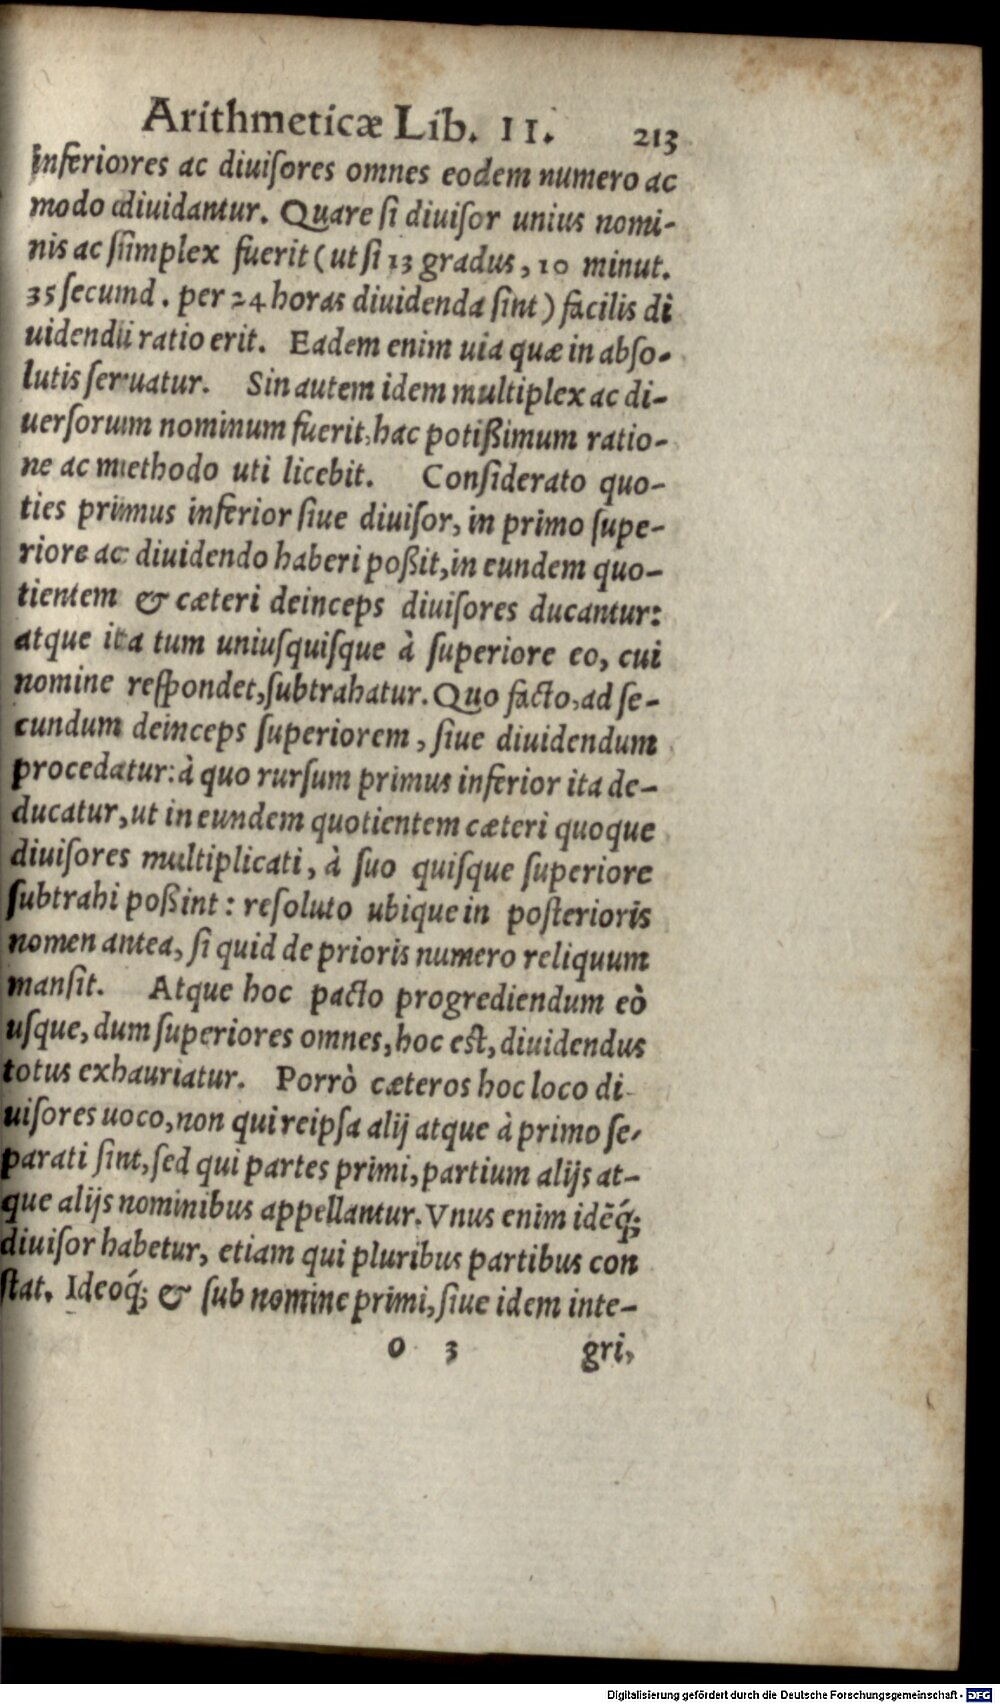 Arithmeticæ Lib. II. 213
inferiores ac diuiſores omnes eodem numero ac
modo diuidantur. Quare ſi diuiſor unius nomi-
nis ac ſimplex fuerit (ut ſi 13 gradus, 10 minut.
35 ſecund. per 24 horas diuidenda ſint) facilis di
uidendi ratio erit. Eadem enim uia quæ in abſo-
lutis ſeruatur. Sin autem idem multiplex ac di-
uerſorum nominum fuerit, hac potißimum ratio-
ne ac methodo uti licebit. Conſiderato quo-
ties primus inferior ſiue diuiſor, in primo ſupe-
riore ac diuidendo haberi poßit, in eundem quo-
tientem & cæteri deinceps diuiſores ducantur:
atque ita tum uniuſquiſque à ſuperiore eo, cui
nomine reſpondet, ſubtrahatur. Quo facto, ad ſe-
cundum deinceps ſuperiorem, ſiue diuidendum
procedatur: à quo rurſum primus inferior ita de-
ducatur, ut in eundem quotientem cæteri quoque
diuiſores multiplicati, à ſuo quiſque ſuperiore
ſubtrahi poßint: reſoluto ubique in poſterioris
nomen antea, ſi quid de prioris numero reliquum
manſit. Atque hoc pacto progrediendum eò
uſque, dum ſuperiores omnes, hoc eſt, diuidendus
totus exhauriatur. Porrò cæteros hoc loco di-
uiſores uoco, non qui reipſa alij atque à primo ſe-
parati ſint, ſed qui partes primi, partium alijs at-
que alijs nominibus appellantur. Vnus enim idẽq́;
diuiſor habetur, etiam qui pluribus partibus con
ſtat. Ideoq́; & ſub nomine primi, ſiue idem inte-
o 3 gri,
Digitalisierung gefördert durch die Deutsche Forschungsgemeinschaft - DFG